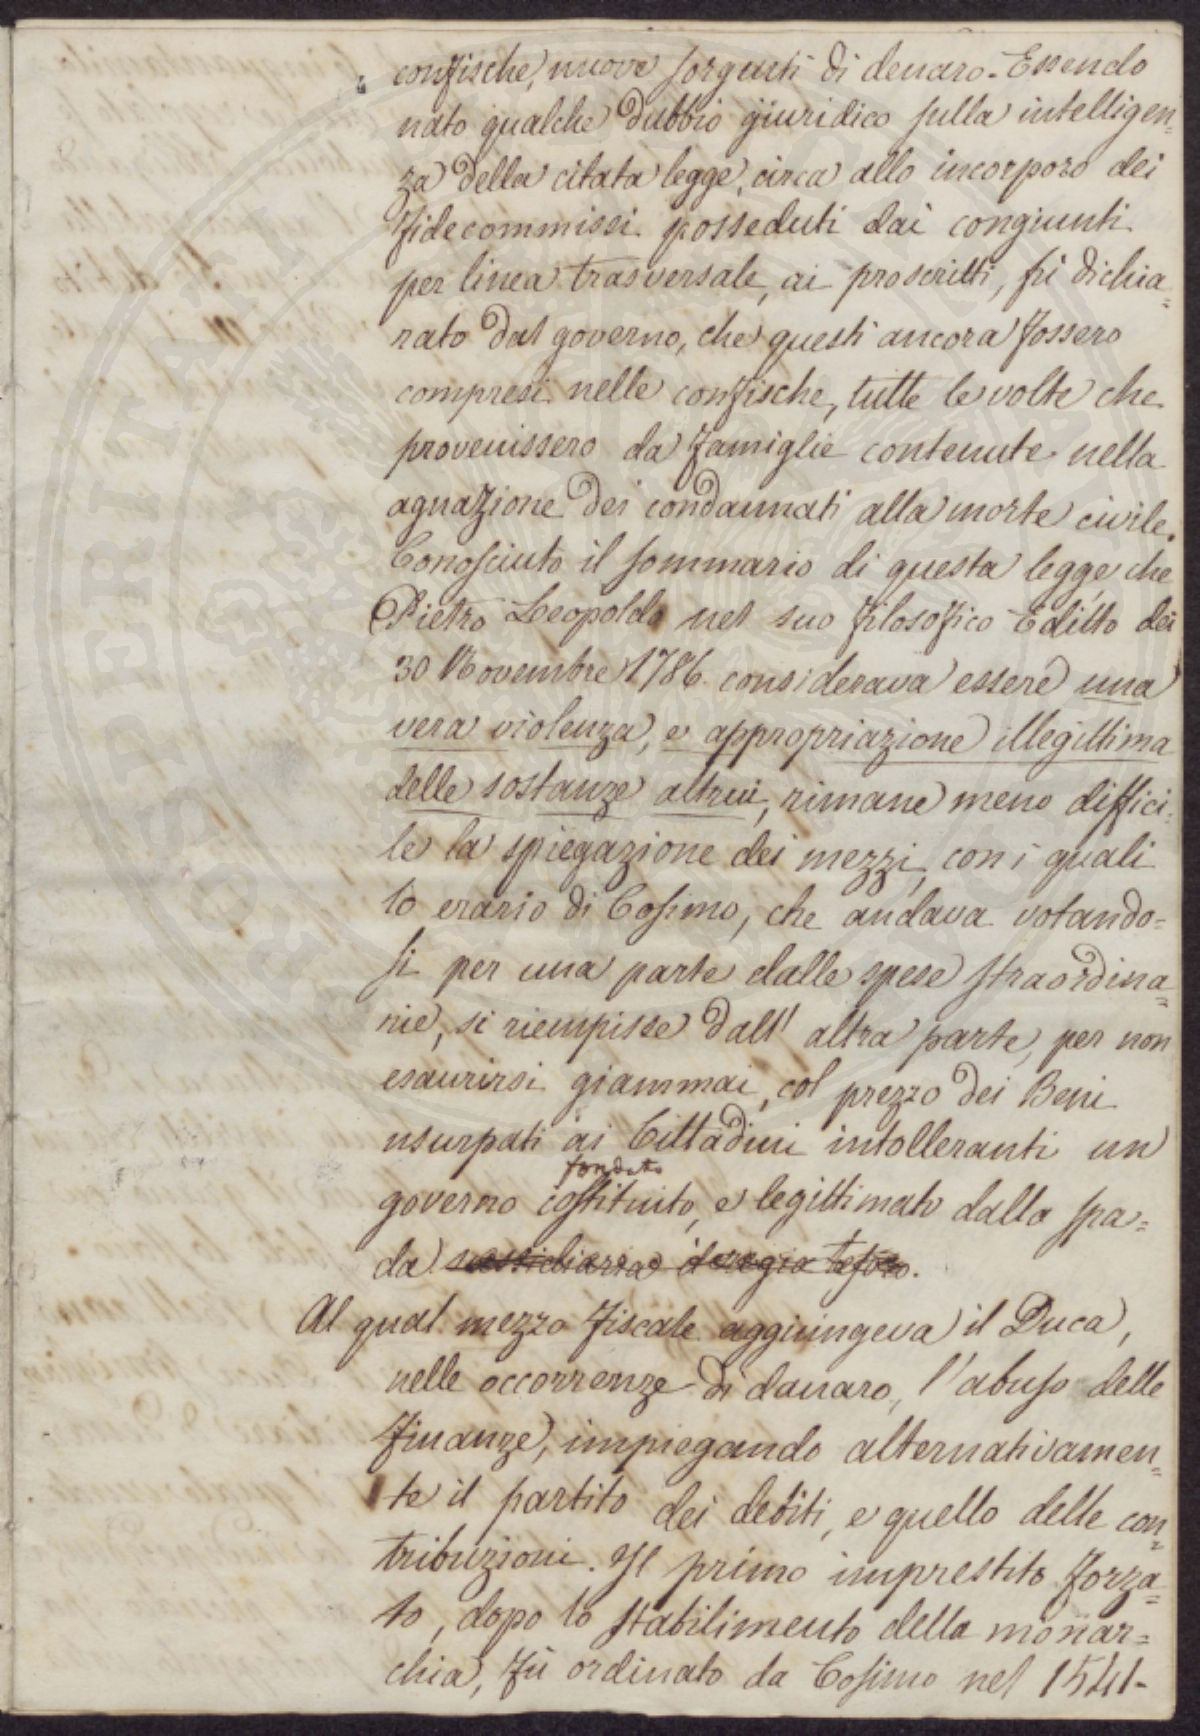 confische, nuove sorgenti di denaro. Essendo
nato qualche dubbio giuridico sulla intelligen=
za della citata legge, circa allo incorporo dei
fidecommissi posseduti dai congiunti
per linea trasversale, ai proscritti, fù dichia=
rato dal governo, che questi ancora fossero
compresi nelle confische, tutte le volte che
provenissero da famiglie contenute nella
agnazione dei condannati alla morte civile.
Conosciuto il sommario di questa legge, che
Pietro Leopoldo nel suo filosofico Editto dei
30 Novembre 1786 considerava essere una
vera violenza, e appropriazione illegittima
delle sostanze altrui, rimane meno diffici=
le la spiegazione dei mezzi, con i quali
lo erario di Cosimo, che andava votando=
si per una parte dalle spese straordina=
rie, si riempisse dall' altra parte, per non
esaurirsi giammai, col prezzo dei Beni
usurpati ai Cittadini intolleranti un
fondato
governo costituito, e legittimato dalla spa=
da sussidiaria il regio tesoro.
Al qual mezzo fiscale aggiungeva il Duca,
nelle occorrenze di danaro, l'abuso delle
finanze, impiegando alternativamen=
te il partito dei debiti, e quello delle con=
tribuzioni. Il primo imprestito forza=
to, dopo lo stabilimento della monar=
chia, fù ordinato da Cosimo nel 1541-
POSPERITATI